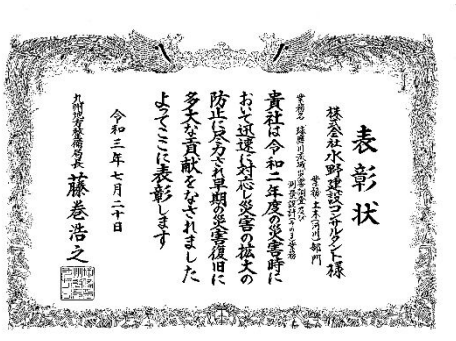 表彰状
株式会社水野建設コンサルタント様
業務 土木(河川)部門
業務名 球磨川流域災害調査及び
測量設計 業務
貴社は令和二年度の災害時に
おいて迅速に対応し災害の拡大の
防止に尽力され早期の災害復旧に
多大な貢献をなされました
よってここに表彰します
令和三年七月二十日
九州地方整備局長 藤巻浩之